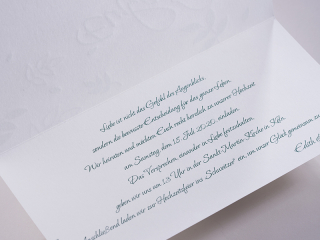 Liebe ist nicht das Gefühl des Augenblicks,
sondern die bewusste Entscheidung für das ganze Leben.
Wir heiraten und möchten Euch recht herzlich zu unserer Hochzeit
am Samstag, dem 15. Juli einladen.
Das Versprechen, einander in Liebe festzuhalten,
geben wir uns um 13 Uhr in der Sankt-Marien-Kirche in Köln.
Anschließend laden wir zur Hochzeitsfeier ins "Schweitzer" ein, um unser Glück gemeinsam zu
Edith